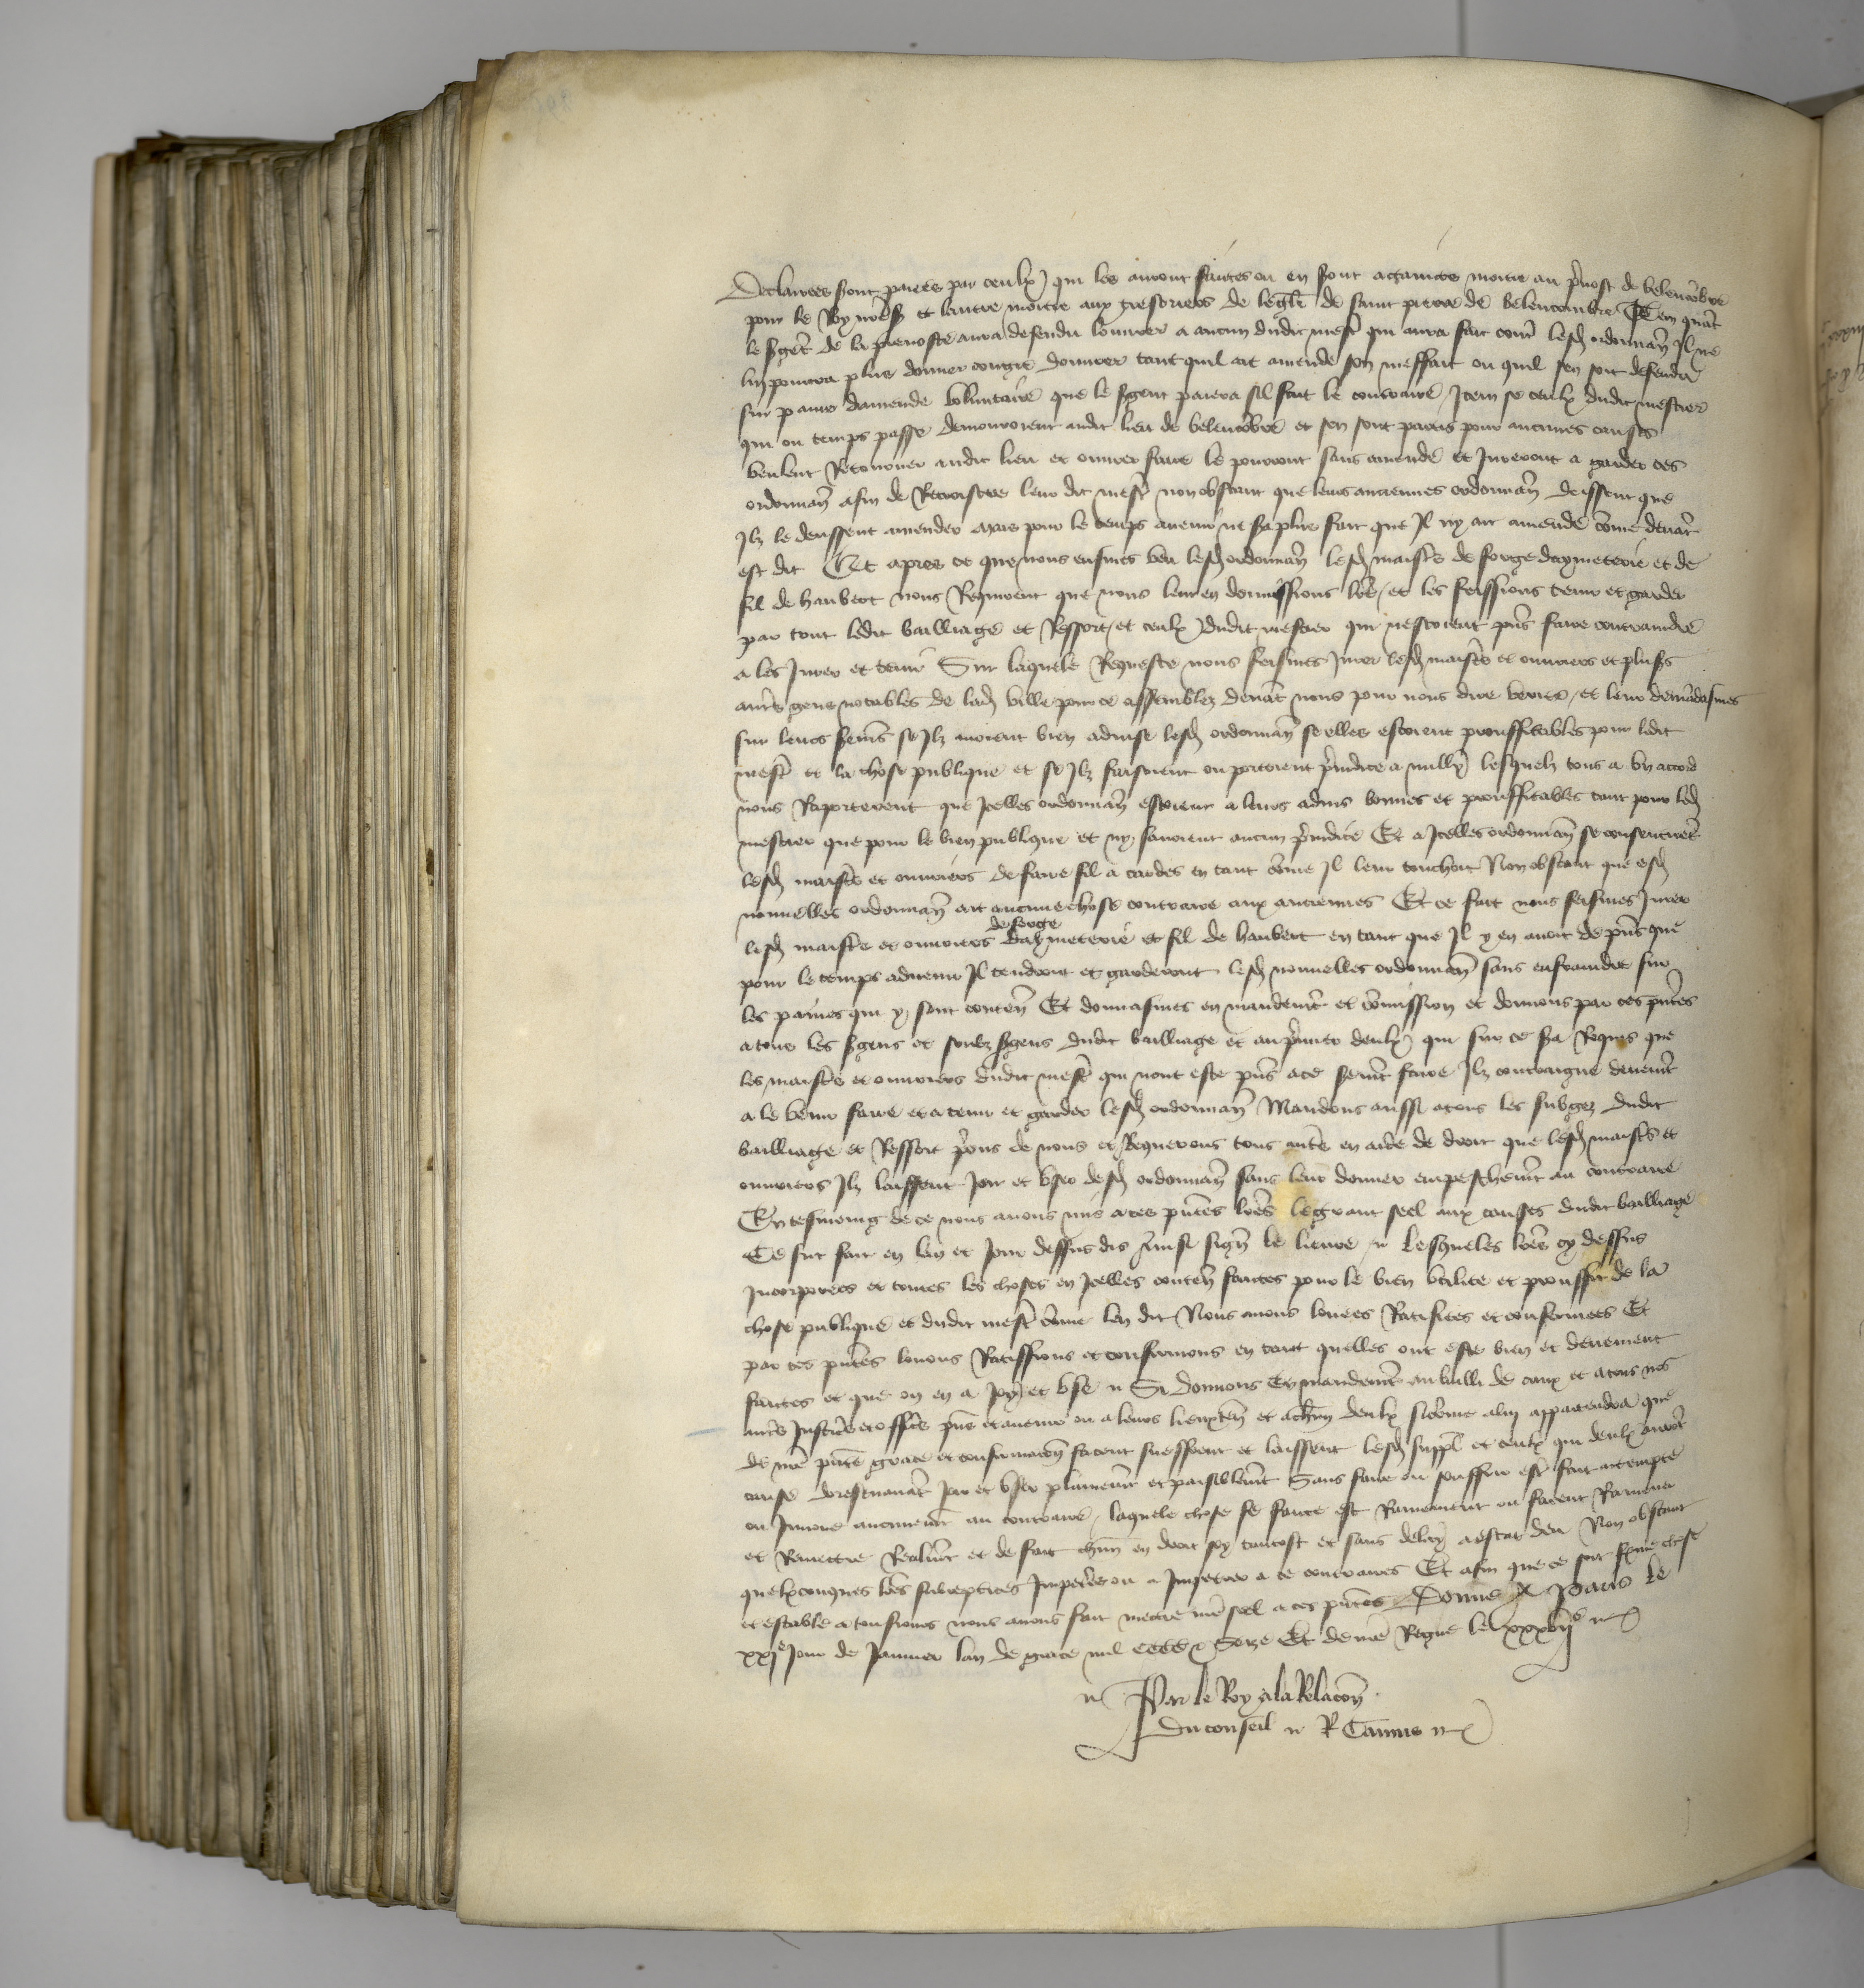 Declairees sont paiees par ceulx qui les auront faictes ou en sont actaintes moitie au pͬuost de belencōbre
pour le Roy nr̄e sͬ et lautre moitie aux tresoriers de leglī de saint pierre de belencombre Item quāt
le sgēt de la preuoste aura defendu louurer a aucun dudit mest̄ qui aura fait cont̄ lesd ordonnan̄ Il ne
luy pourra plus donner congie douurer tant quil ait amende son meffait ou quil sen soit defendu
sur paine damende voluntaire que le sgent paiera sil fait le contraire / Item se ceulx dudit mestier
qui ou temps passe demouroient audit lieu de belencōbre et sen sont partis pour aucunes causes
veulent Retourner audit lieu et ouurer faire le pourront sans amende et Jureront a garder ces
ordonnan̄ afin de Recroistre leur dit mest̄ non obstant que leurs anciennes ordonnan̄ deissent que
Ilz le deussent amender Mais pour le temps auenir ne sͣ plus fait que Il ny ait amende cōme deuāt
est dit Et apres ce que nous eusmes veu lesd ordonnan̄ lesd maist̄s de forge dagmeterie et de
fil de haubert nous Requirent que nous leur en donnissions lr̄e / et les feissions tenir et garder
par tout ledit bailliage et Ressort / et ceulx dudit mestier qui nestoient pn̄s faire contraindre
a les Jurer et tenir Sur laquele Requeste nous feismes Jurer lesd maist̄s et ouuriers et plusͬs
aut̄s gens notables de lad ville pour ce assemblez deuāt nous pour nous dire verite / et leur demādasmes
sur leurs serm̄s se Ilz auoient bien aduise lesd ordonnan̄ se elles estoient prouffitables pour ledit
mest̄ et la chose publique et se Ilz faisoient ou portoient pͬiudice a nullx lesquelz tous a vn accord
nous Raporterent que Icelles ordonnan̄ estoient a leurs aduis bonnes et prouffitables tant pour led
mestier que pour le bien publique et ny sauoient aucun pͬiudice Et a Icelles ordonnan̄ se consentirēt
lesd maist̄s et ouuriers de faire fil a cardes en tant cōme Il leur touchoit Non obstant que esd
nouuelles ordonnan̄ ait aucune chose contraire aux anciennes Et ce fait nous feismes Jurer
lesd maist̄s et ouuriers de forge dagmeterie et fil de haubert en tant que Il y en auoit de pn̄s que
pour le temps aduenir Il tendront et garderont lesd nouuelles ordonnan̄ sans enfraindre sur
les paines qui y sont conten̄ Et donnasmes en mandemt̄ et cōmission et donnons par ces pn̄tes
a tous les sgens et soubz sgens dudit bailliage et au pͬmier deulx qui sur ce sͣ Requis que
les maist̄s et ouuriers dudit mest̄ qui nont este pn̄s a ce sermt̄ faire Ilz contraigne deuemt̄
a le venir faire et a tenir et garder lesd ordonnan̄ Mandons aussi a tous les subgez dudit
bailliage et Ressort pͬons de nous et Requerons tous aut̄s en aide de droit que lesd maist̄s et
ouuriers Ilz laissent Joir et vser desd ordonnan̄ sans leur donner empeschemt̄ au contraire
En tesmoing de ce nous auons mis a ces pn̄tes lr̄es le grant seel aux causes dudit bailliage
Ce fut fait en lan et Jour dessus dis Ainsi sign̄ le lieure Lesqueles lr̄es cy dessus
Incorporees et toutes les choses en Icelles conten̄ faictes pour le bien vtilite et prouffit de la
chose publique et dudit mest̄ cōme len dit Nous auons louees Ratifiees et confermees Et
par ces pn̄tes louons Ratiffions et confermons en tant quelles ont este bien et deuement
faictes et que on en a Joy et vse Si donnons En mandemt̄ au bailli de caux et a tous nos
aut̄s Justic̄s et offic̄s pn̄s et auenir ou a leurs lieuxten̄ et a chūn deulx si cōme a luy appartendra que
de nr̄e pn̄te grace et confirmacōn facent sueffrent et laissent lesd suppl̄ et ceulx qui deulx aurōt
cause doresenauāt Joir et vser plainemt̄ et paisiblemt̄ Sans faire ou souffrir est̄ fait attempte
ou Innoue aucunemt̄ au contraire / laquele chose se faicte est Ramainent ou facent Ramener
et Remettre Realmt̄ et de fait chūn en droit soy tantost et sans delay a estat deu Non obstant
quelxconques lr̄es subreptices Impet̄es ou a Impetrer a ce contraires Et afin que ce soit ferme chose
et estable a tousiours nous auons fait mettre nr̄e seel a ces pn̄tes Donne A Paris le
xxjͤ Jour de Januier lan de grace mil cccc x Seze Et de nr̄e Regne le xxxvijͤ
Par le Roy a la Relacōn
Du conseil R Camus